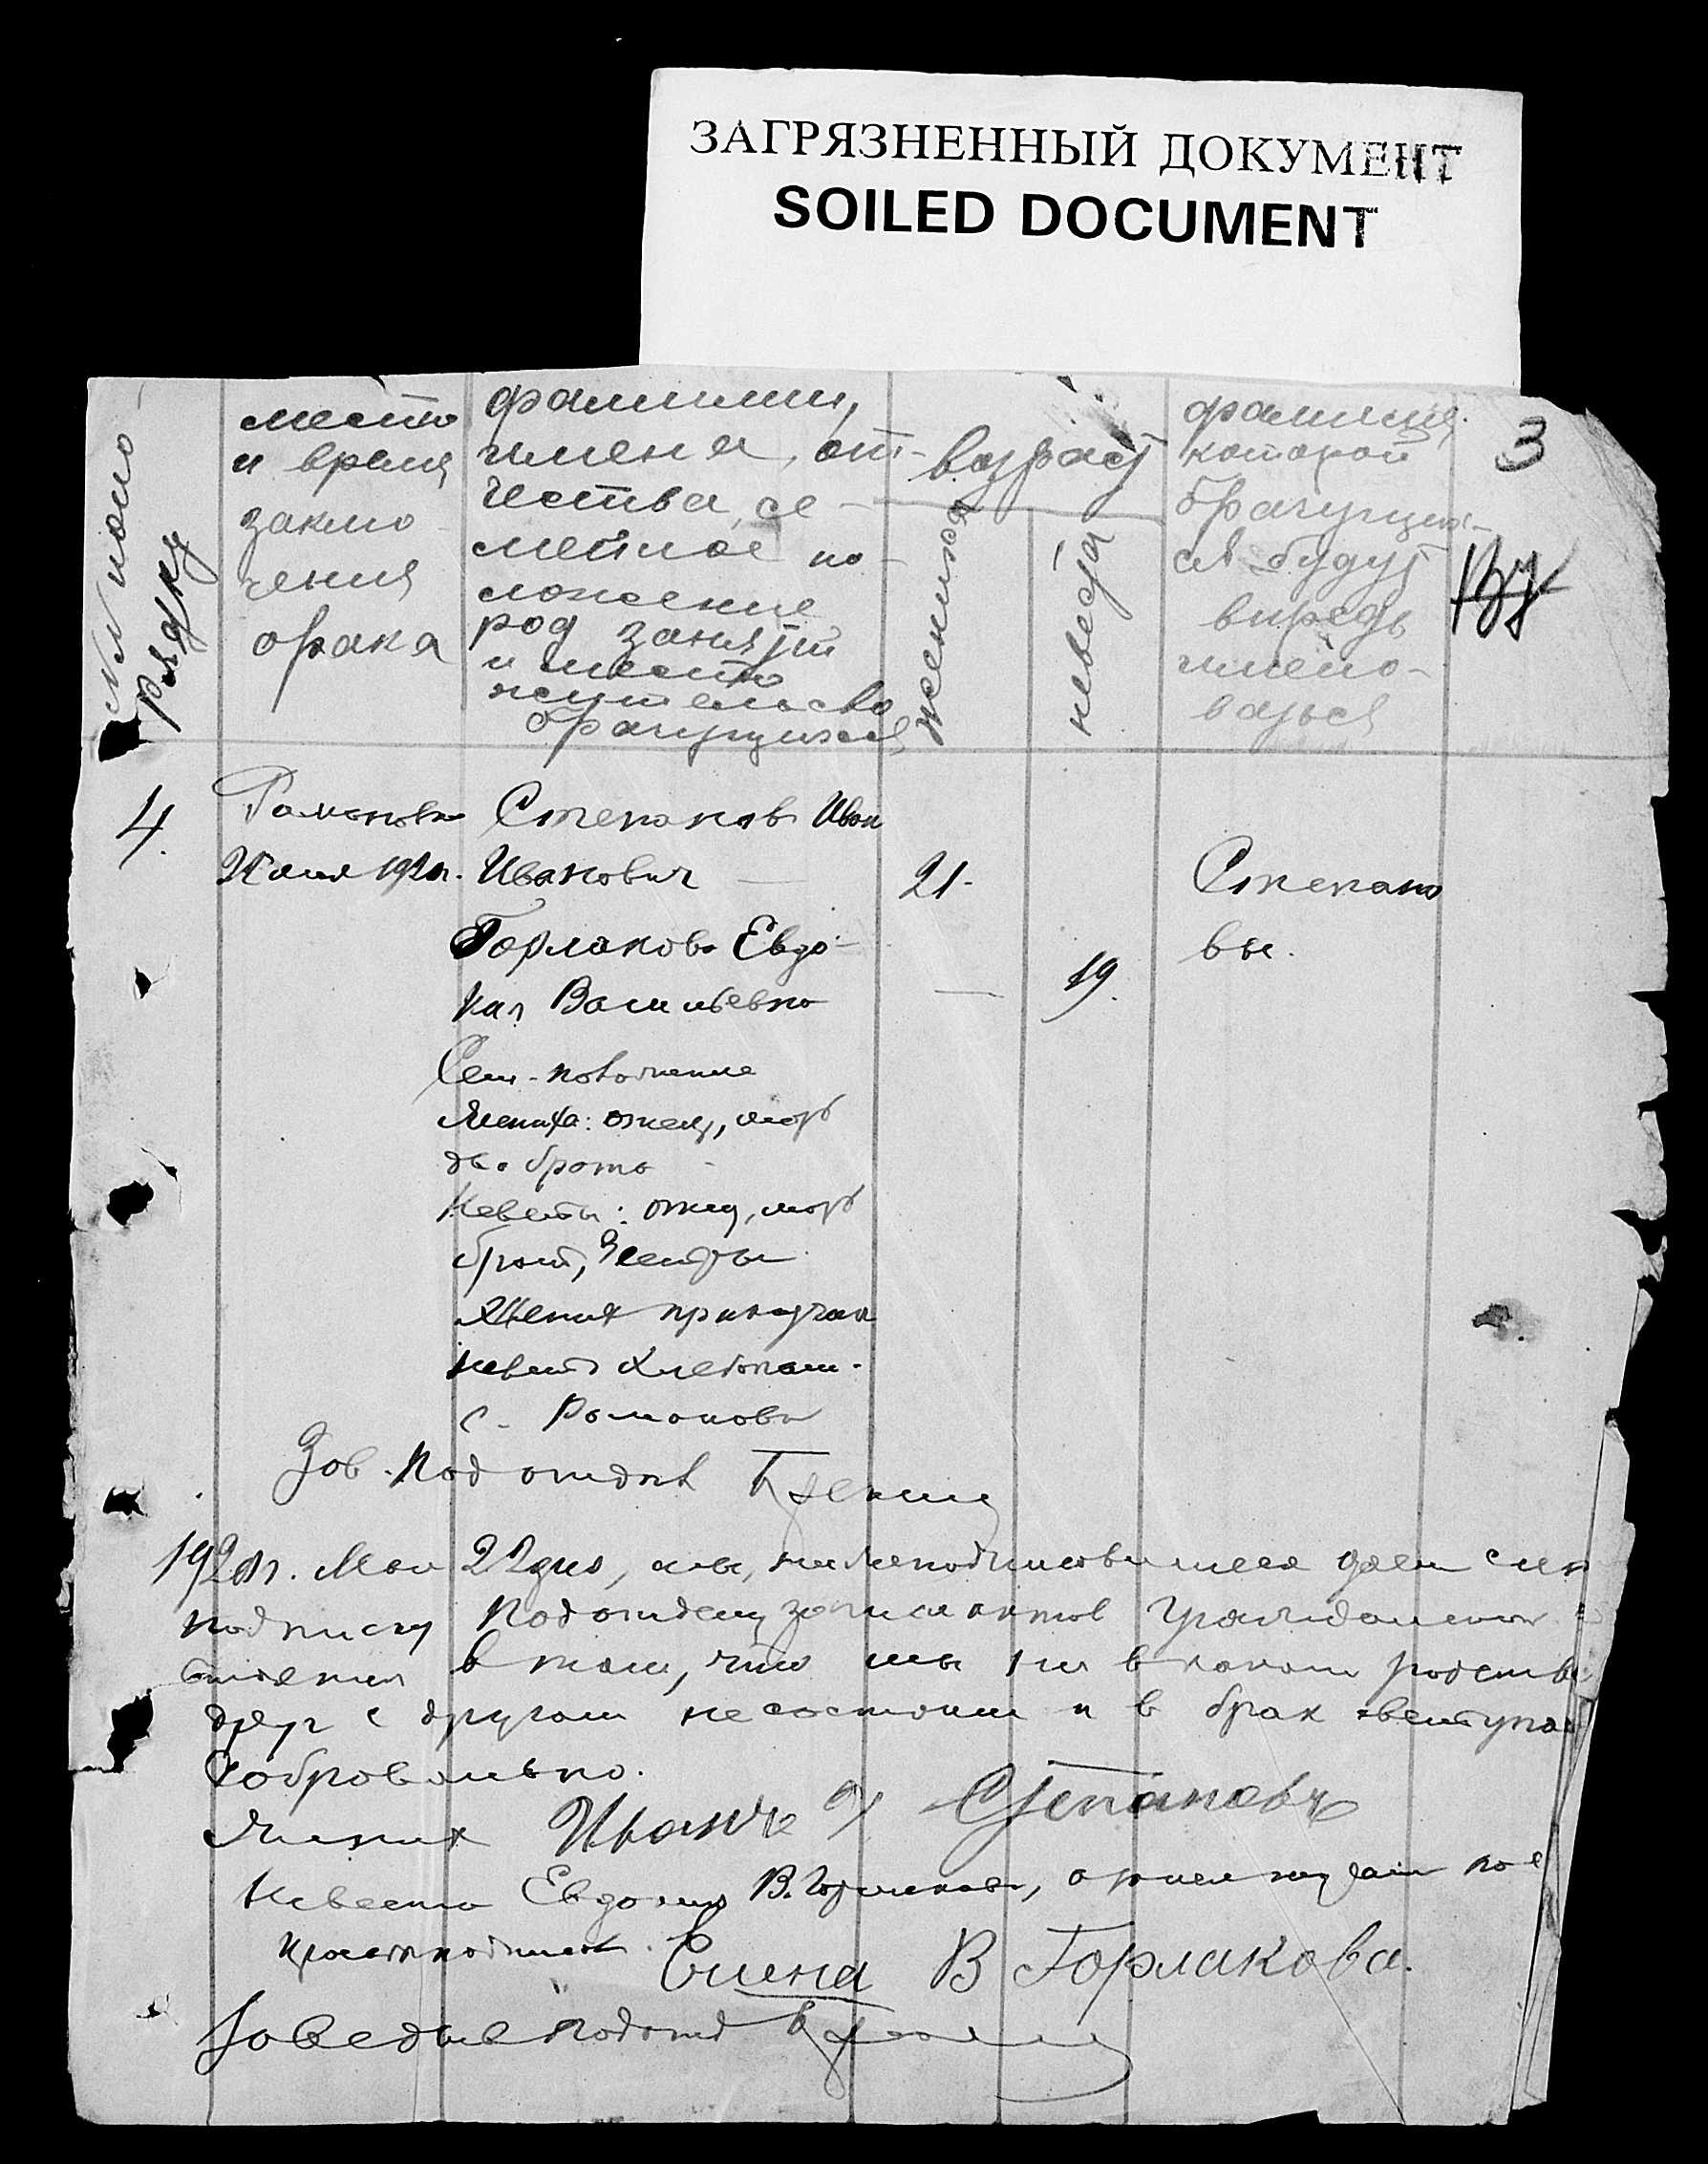 ЗАГРЯЗНЕННЫЙ ДОКУМЕНТ
SOILED DOCUMENT
3
№№ по по
рядку
место
и время
заклю
чения
брака
фамилии,
имена, от-
чества, се-
мейное по-
ложение
род занятий
и место
жительство
брачущихся
возраст
жениха
невеста
фамилия,
которой
брачущие-
ся будут
впредь
имено-
ваться
4.
Романовка
Степанов Иван
Иванович
21-
Степано
вы.
Горлакова Евдо-
кия Васильевна
19.
Сем. положение
Жениха: отец, мать
два брата
Невесты: отец, мать
брат, 3 сестры
Жених
невеста хлебопаш.
с. Романовка
Зав. Подотдел
192 г. Мая 22 дня, мы, нижеподписавшиеся даем сию
подписку Подотделу записи актов гражданского
состояния в том, что мы ни в каком родстве
друг с другом не состоим и в брак вступаем
добровольно.
Жених Иван Степанов
Невеста Евдокия В. Горлакова, а
Елена В Горлакова.
Заведые подотд